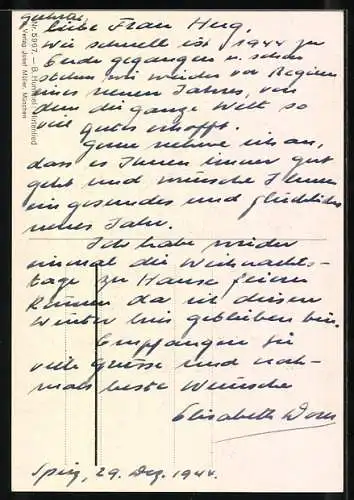 Liebe Frau Hug,
Wie schnell ist 1944 zu
Ende gegangen u. schon
stehen wir wieder vor Beginn
eines neuen Jahres, von
dem die ganze Welt so
viel gutes erhofft.
Gerne nehme ich an,
dass es Ihnen immer gut
geht und wünsche Ihnen
ein gesundes und glückliches
neues Jahr.
Ich habe wieder
einmal die Weihnachts-
tage zu Hause feiern
können da ich diesen
Winter hier geblieben bin.
Empfangen Sie
viele Grüsse und noch-
mals beste Wünsche
Elisabeth
Spiez, 29. Dez. 1944.
Nr. 5967. — B. Hummel: Hirtenlied
Verlag Josef Müller, München